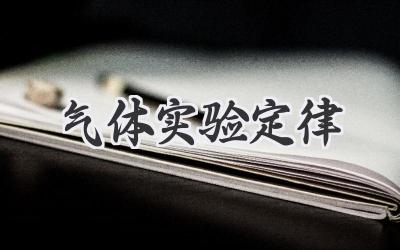 气体实验定律